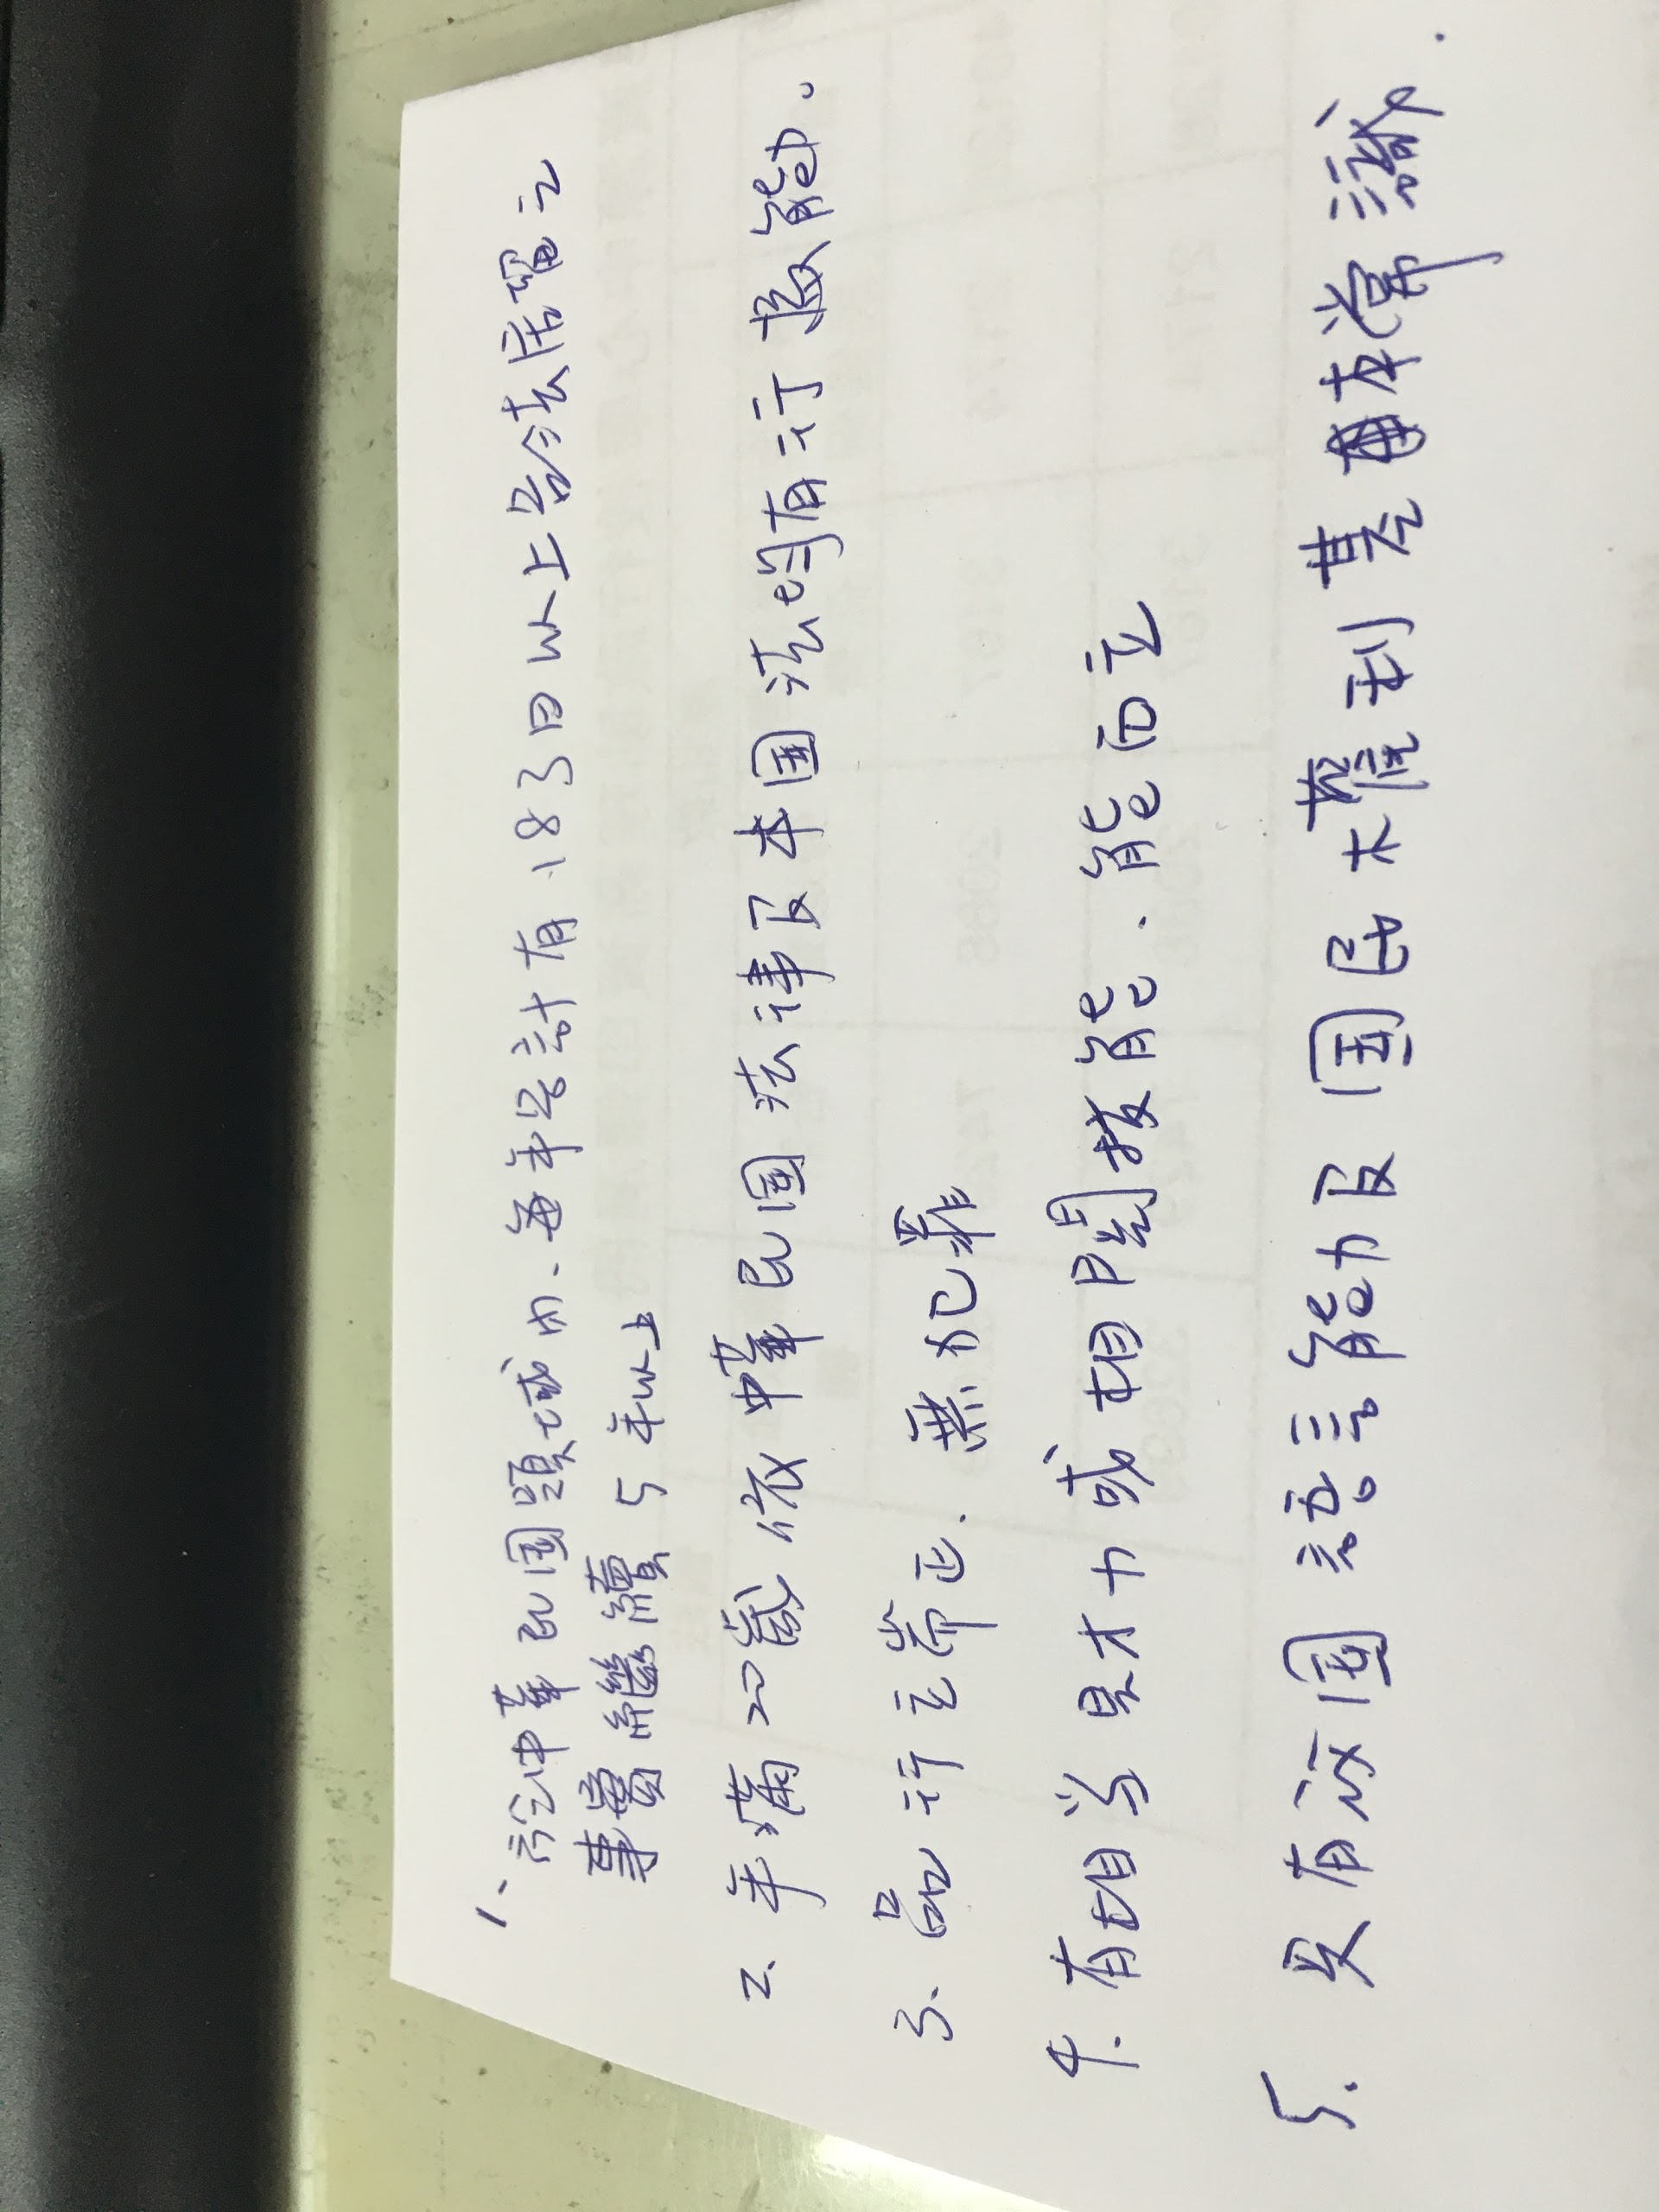 1、於中華民国領域內、每年合計有183日以上合法居留之
事實繼續5年以上
2. 年滿20歲依中華民国法律及本国法均有行為能力。
3. 品行端正. 無犯罪
4. 有相当財力或相関技能. 能自立
5. 具有我国語言能力及国民權利基本常識.